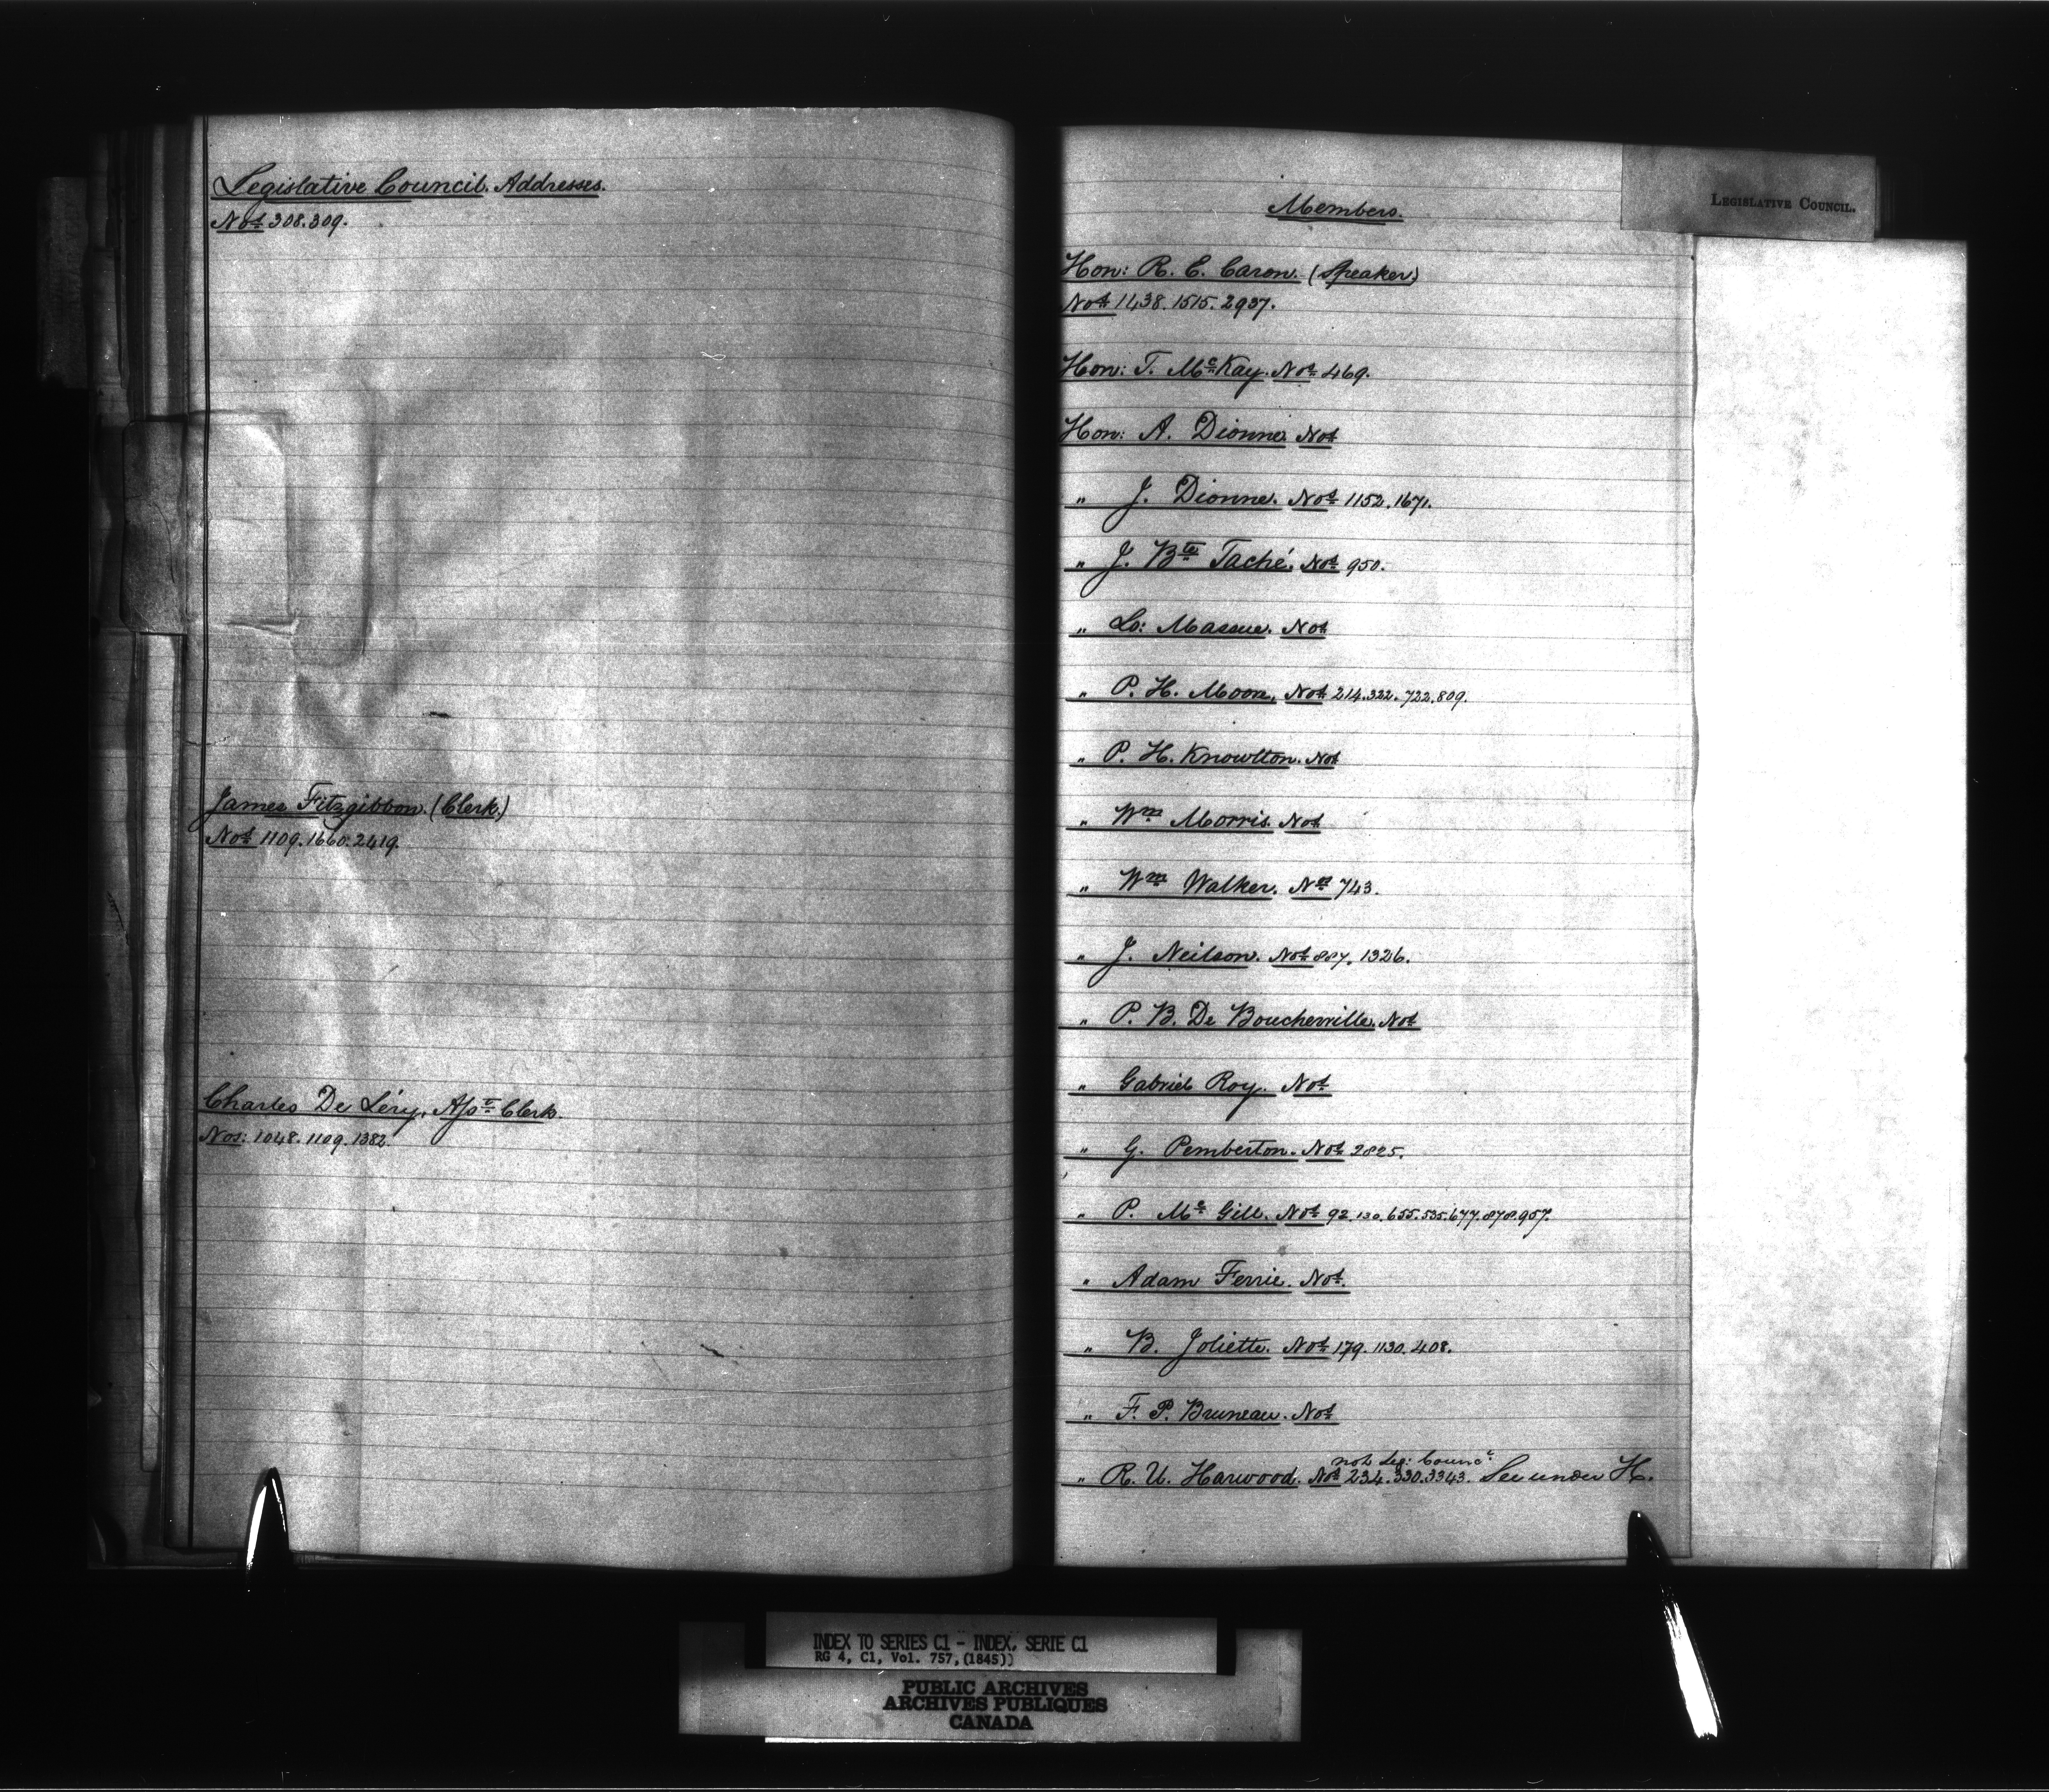 Legislative Council. Addresses.
Nos 308.309.
James Fitzgibbon. (Clerk.)
Nos 1109.1660.2419.
Charles De Léry, Asst Clerk.
Nos: 1048.1109.1382.
LEGISLATIVE COUNCIL.
Members.
Hon: R. E. Caron. (Speaker)
Nos 1438.1515.2937.
Hon: T. McKay. Nos 469.
Hon: A. Dionne. Nos
" J. Dionne. Nos 1152.1671.
" J. Bte Taché. Nos 950.
" Ls: Massue. Nos
" P. H. Moore, Nos 214.322.722.809.
" P. H. Knowlton. Nos
" Wm Morris. Nos
" Wm Walker. Nos 743.
" J. Neilson. Nos 887.1326.
" P. B. De Boucherville. Nos
" Gabriel Roy. Nos
" G. Pemberton. Nos 2825.
" P. Mc Gill. Nos 92.130.655.535.677.878.957.
" Adam Ferrie. Nos.
" B. Joliette. Nos 179.1130.408.
" F. P. Bruneau. Nos
not Leg: Counc:
" R. U. Harwood. Nos 234.330.3343. See under H.
INDEX TO SERIES C1 - INDEX, SERIE C1
RG 4, C1, Vol. 757,(1845))
PUBLIC ARCHIVES
ARCHIVES PUBLIQUES
CANADA